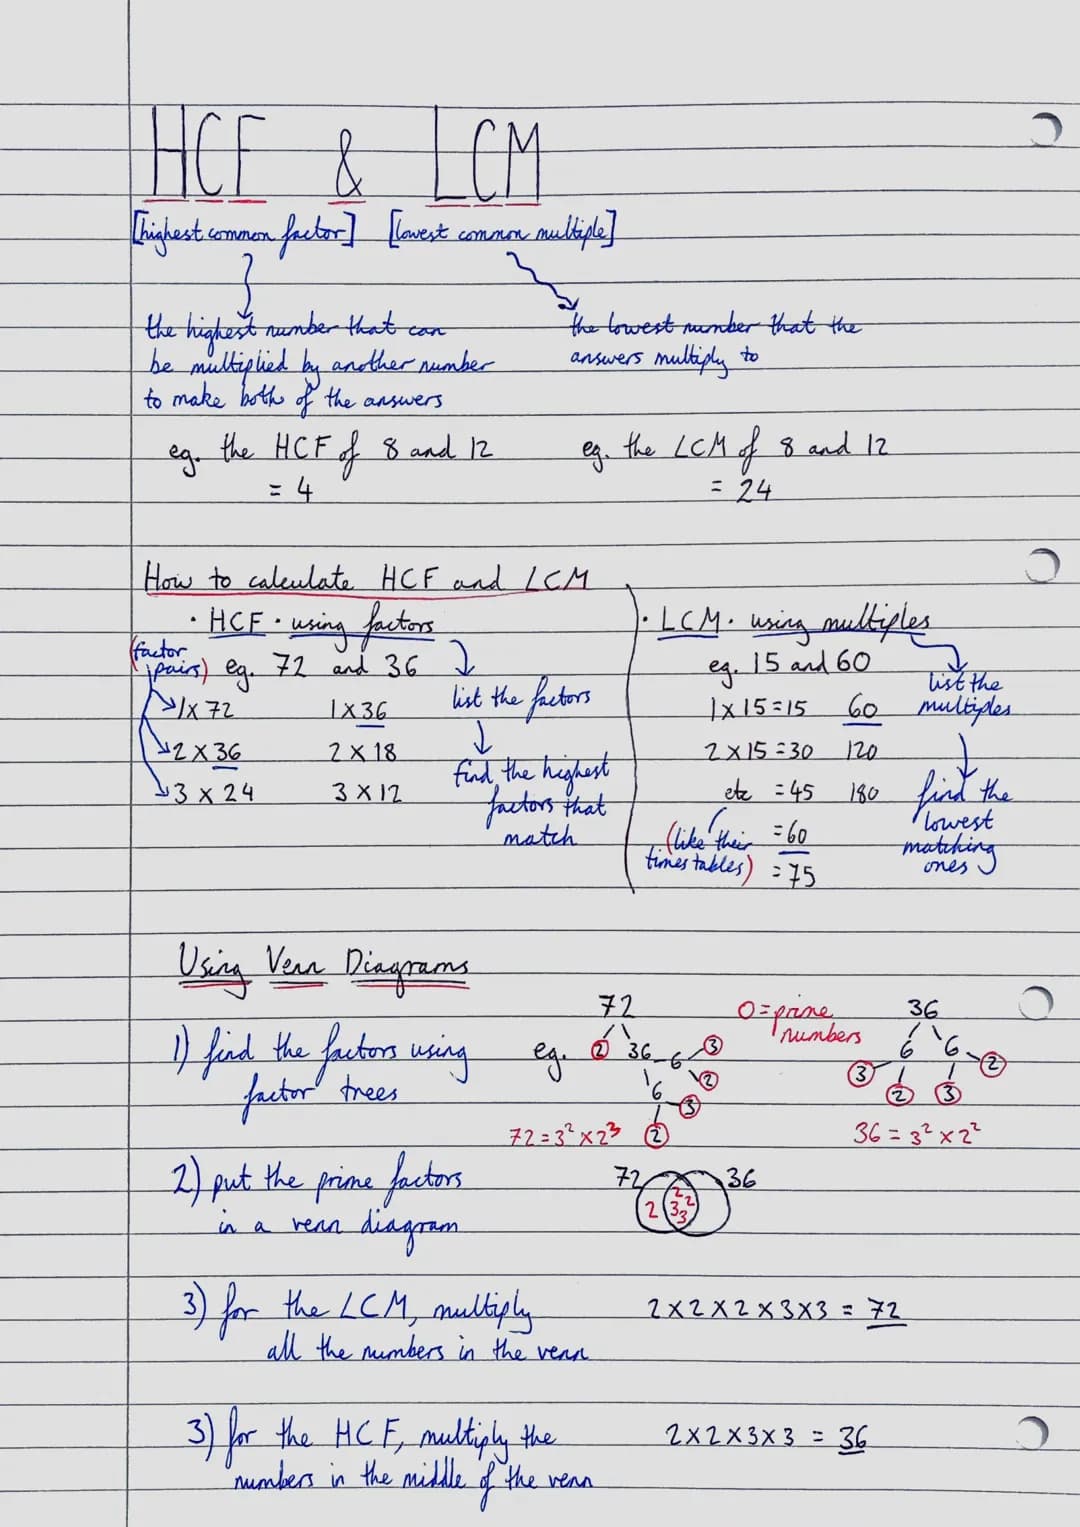 HCF & LCM
[highest common factor] [lowest common multiple]
the highest number that can
be multiplied by another number
to make both of the answers
the lowest number that the
answers multiply to
eg. the HCF of 8 and 12
= 4
eg. the LCM of 8 and 12
= 24
How to calculate HCF and LCM
· HCF · using factors
(factor
pairs) eg. 72 and 36
1 x 72 1 x 36
2 x 36 2 x 18
3 x 24 3 x 12
list the factors
find the highest
factors that
match
· LCM · using multiples
eg. 15 and 60
1 x 15 = 15 60
2 x 15 = 30 120
etc = 45 180
(like their = 60
times tables) = 75
list the
multiples
find the
lowest
matching
ones
Using Venn Diagrams
1) find the factors using
factor trees
eg.
72
2 36 6 3
2
6 3
2
72 = 3² x 2³
O = prime
numbers
36
6 6
3 2 3 2
36 = 3² x 2²
2) put the prime factors
in a venn diagram
72 36
2 2 2 3 3
3) for the LCM, multiply
all the numbers in the venn
2 x 2 x 2 x 3 x 3 = 72
3) for the HCF, multiply the
numbers in the middle of the venn
2 x 2 x 3 x 3 = 36